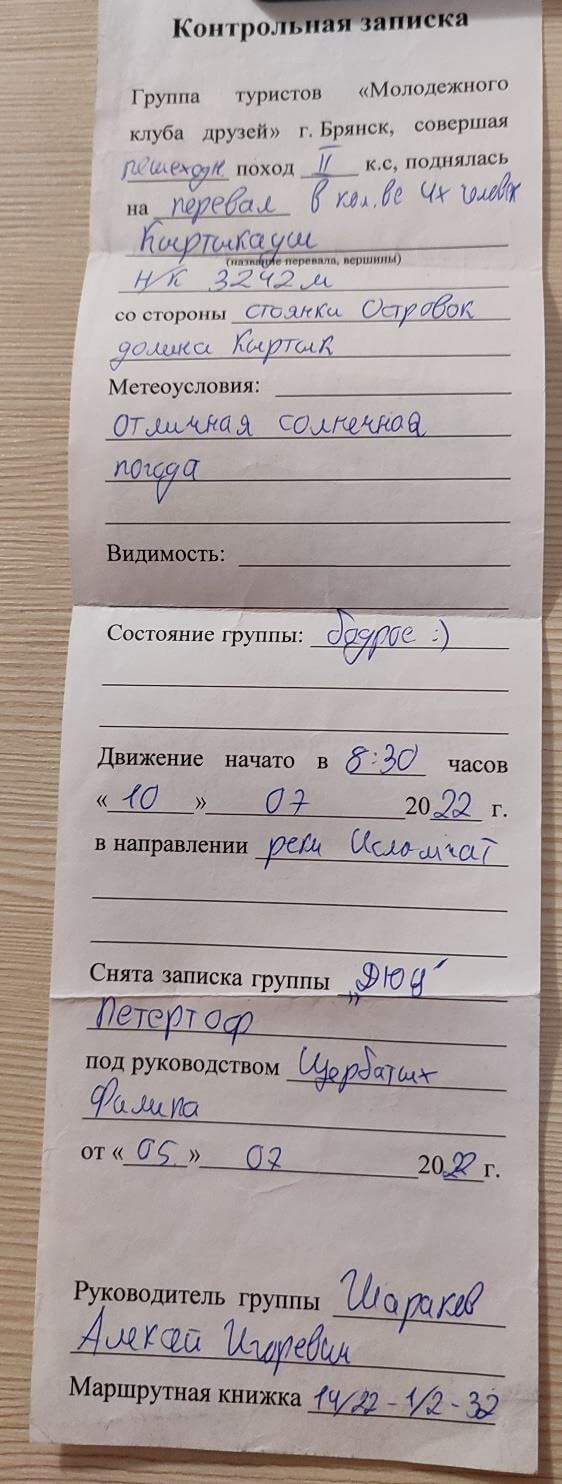 Контрольная записка
Группа туристов «Молодежного
клуба друзей» г. Брянск, совершая
пешеходн. поход II к.с, поднялась
на перевал в кол.ве 4х человек
Кыртыкауш
(название перевала, вершины)
Н/К 3242 м
со стороны стоянки Островок
долина Кыртык
Метеоусловия:
отличная солнечная
погода
Видимость:
Состояние группы: бодрое :)
Движение начато в 8:30 часов
« 10 » 07 2022 г.
в направлении реки Исламчат
Снята записка группы „ДЮЦ"
Петергоф
под руководством Щербатых
Филипа
от « 05 » 07 2022 г.
Руководитель группы
Алексей Игоревич
Маршрутная книжка 14/22-1/2-32